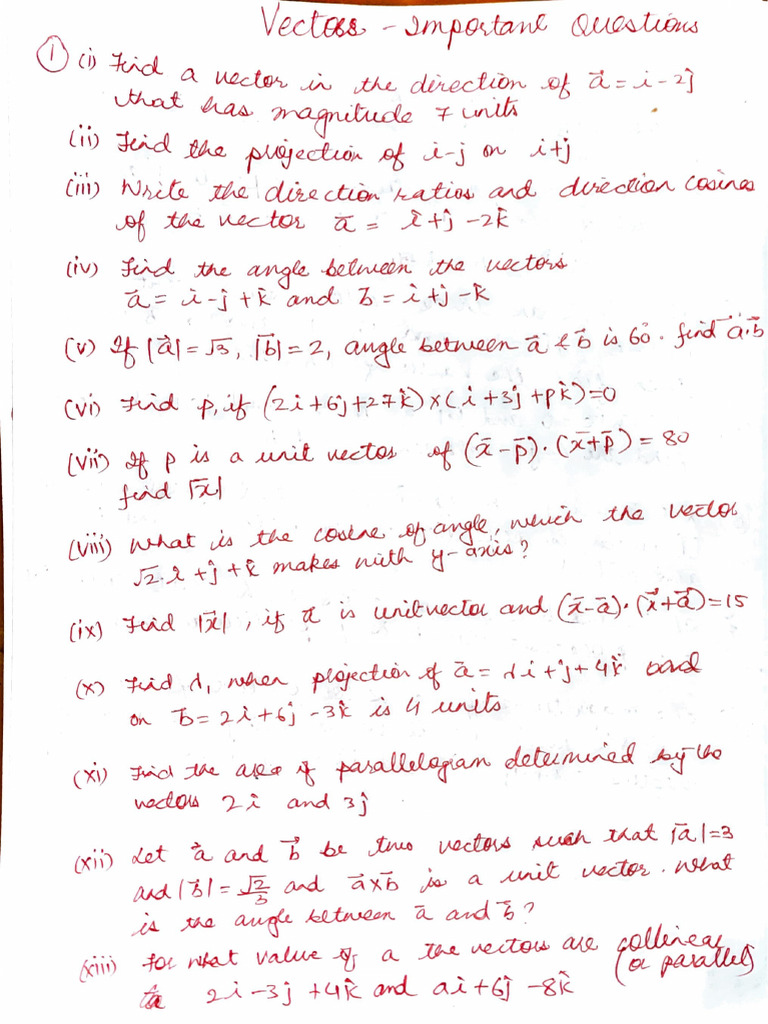 Vectors - Important Questions
① (i) Find a vector in the direction of a⃗ = i - 2j
that has magnitude 7 units
(ii) Find the projection of i-j on i+j
(iii) Write the direction ratios and direction cosines
of the vector a⃗ = î+ĵ-2k̂
(iv) Find the angle between the vectors
a⃗ = i-j+k̂ and b⃗ = i+j-k̂
(v) If |a⃗| = √3, |b⃗| = 2, angle between a⃗ & b⃗ is 60°. find a⃗·b⃗
(vi) Find p, if (2i+6j+27k̂)×(i+3j+pk̂)=0
(vii) If p is a unit vector of (x̄-p̄)·(x̄+p̄) = 80
find |x̄|
(viii) What is the cosine of angle, which the vector
√2·i+j+k̂ makes with y-axis?
(ix) Find |x⃗|, if a⃗ is unit vector and (x̄-ā)·(x⃗+a⃗)=15
(x) Find λ, when projection of ā = λi+j+4k̂
on b̄ = 2i+6j-3k̂ is 4 units
(xi) Find the area of parallelogram determined by the
vectors 2i and 3j
(xii) Let a⃗ and b⃗ be two vectors such that |ā|=3
and |b⃗| = √2/3 and a⃗×b̄ is a unit vector. What
is the angle between ā and b⃗?
(xiii) For what value of a the vectors are collinear
(or parallel)
2i-3j+4k̂ and ai+6j-8k̂